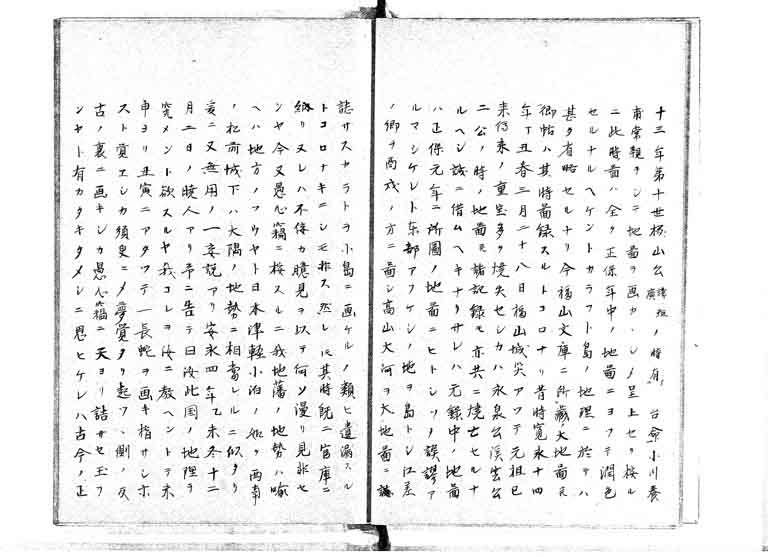 十三年第十世極山公諱矩廣ノ時有台命小川養
甫常親ヲシテ地圖ヲ画カシメ呈上セリ按ル
ニ此時圖ハ全ク正保年中ノ地圖ニヨツテ潤色
セルナルヘケントカラフト島ノ地理ニ於テハ
甚タ省略セルナリ今福山文庫ニ所藏大地圖元
御帖ハ其時圖録スルトコロナリ昔時寛永十四
年丁丑春三月二十八日福山城災アツテ元祖已
来傳来ノ重宝多ク焼失セシカハ永泉公渓雲公
二公ノ時ノ地圖モ諸記録モ亦共ニ焼亡セルナ
ルヘシ誠ニ惜ムヘキナリサレハ元録中ノ地圖
ハ正保元年ニ所圖ノ地圖ニヒトシツノ誤謬ア
ルマシケレト东部アツケシノ地ヲ島トシ江差
ノ郷ヲ局戌ノ方ニ圖シ高山大河ヲ大地圖ニ誌
誌サスカラトヲ小島ニ画ケルノ類ヒ遺漏スル
トコロナキニシモ非ス然レ𪜈其時既ニ官庫ニ
納リヌレハ不侫カ臆見ヲ以テ何ソ漫リ見非セ
ンヤ今又愚心竊ニ按スルニ我地藩ノ地勢ハ喩
ヘハ地方ノツウヤト日本津軽小泊ノ如ク西南
ノ松前城下ハ大隅ノ地勢ニ相當レルニ似タリ
爰ニ又無用ノ一妄説アリ安永四年乙未冬十二
月二日ノ暁人アリ予ニ告テ曰汝此国ノ地理ヲ
究メント欲スルヤ我コレヲ汝ニ教ヘントテ未
申ヨリ丑寅ニアタツテ一長蛇ヲ画キ指サシホ
スト覚エシカ須臾ニメ夢覚タリ起ツハ側ノ反
古ノ裏ニ画キシカ愚心竊ニ天ヨリ詰サセ玉フ
ンヤト有カタキタメシニ思ヒケレハ古今ノ正